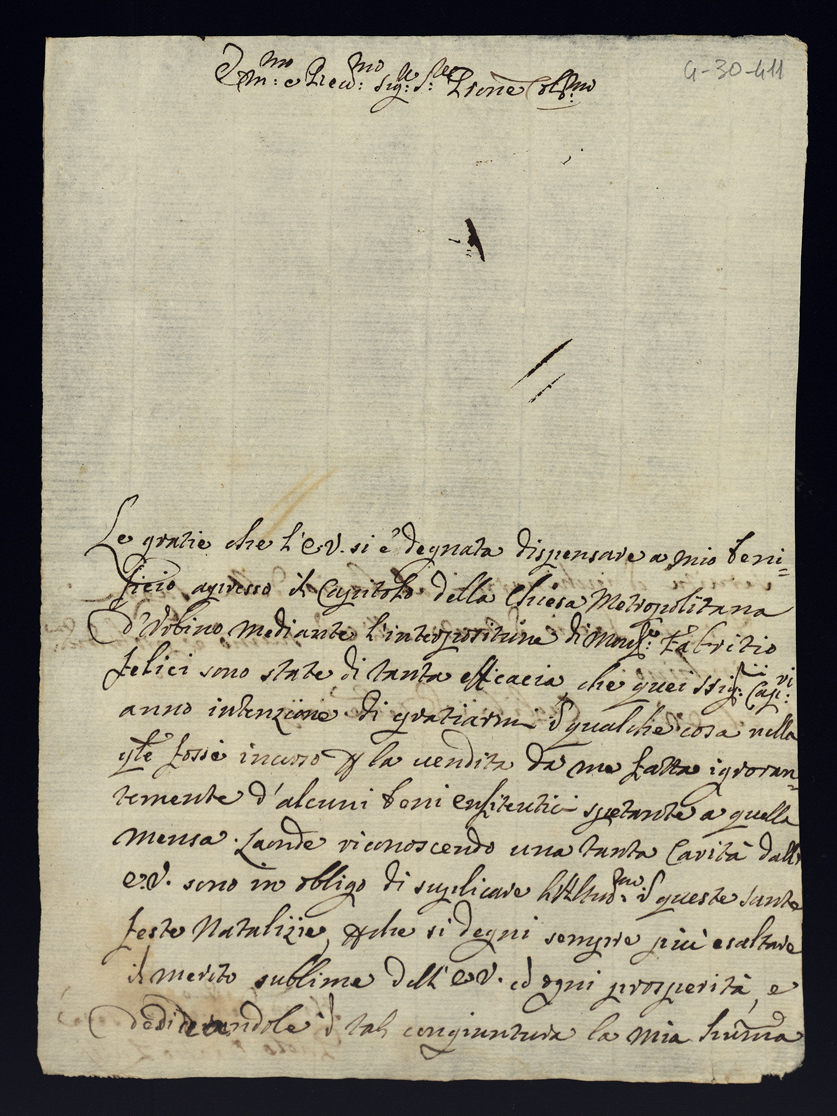 Em:mo e Rev:mo Sig:re S:re Prone Col:mo
G-30-411
Le gratie che l'E.V. si è degnata dispensare a mio beni=
ficio apresso il Capitolo della Chiesa Metropolitana
d'Urbino mediante l'interpositione di Mons:re Fabritio
Felici sono state di tanta efficacia che quei SSig:ri Cap:ri
anno intenzione di gratiarmi qualche cosa nella
qle fossi incorso la vendita da me fatta ignoran=
temente d'alcuni beni enfiteutici spetante a quella
mensa. Laonde riconoscendo una tanta Carità dall'
E.V. sono in obligo di suplicare l'Altmo queste sante
feste Natalizie, che si degni sempre più esaltare
il merito sublime dell'E.V. ed ogni prosperità, e
dedicandole tal congiuntura la mia hum̃a